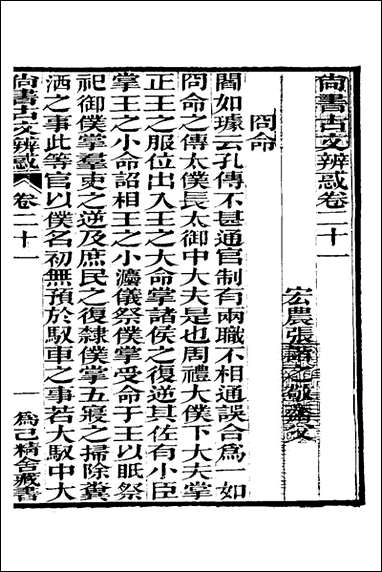 尚書古文辨惑卷二十一
宏農張諧之敬齋父
冏命
閻如璩云孔傳不甚通官制有兩職不相通誤合為一如
冏命之傳太僕長太御中大夫是也周禮大僕下大夫掌
正王之服位出入王之大命掌諸侯之復逆其佐有小臣
掌王之小命詔相王之小灋儀祭僕掌受命于王以眂祭
祀御僕掌羣吏之逆及庶民之復隸僕掌五寢之掃除糞
洒之事此等官以僕名初無預於馭車之事若大馭中大
尚書古文辨惑 卷二十一 一 為己精舍藏書